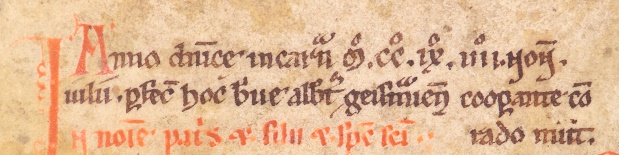 Anno dn̄ice incarn̄ M̊. cc̊. ix̊. iiii. noñ.
iulii. ꝑfec̄ hoc b̄ue alb̄t geism̄ien̄ cooꝑante co
n noīe pat's ⁊ filii ⁊ sp̄c sc̄i. rado mūt.